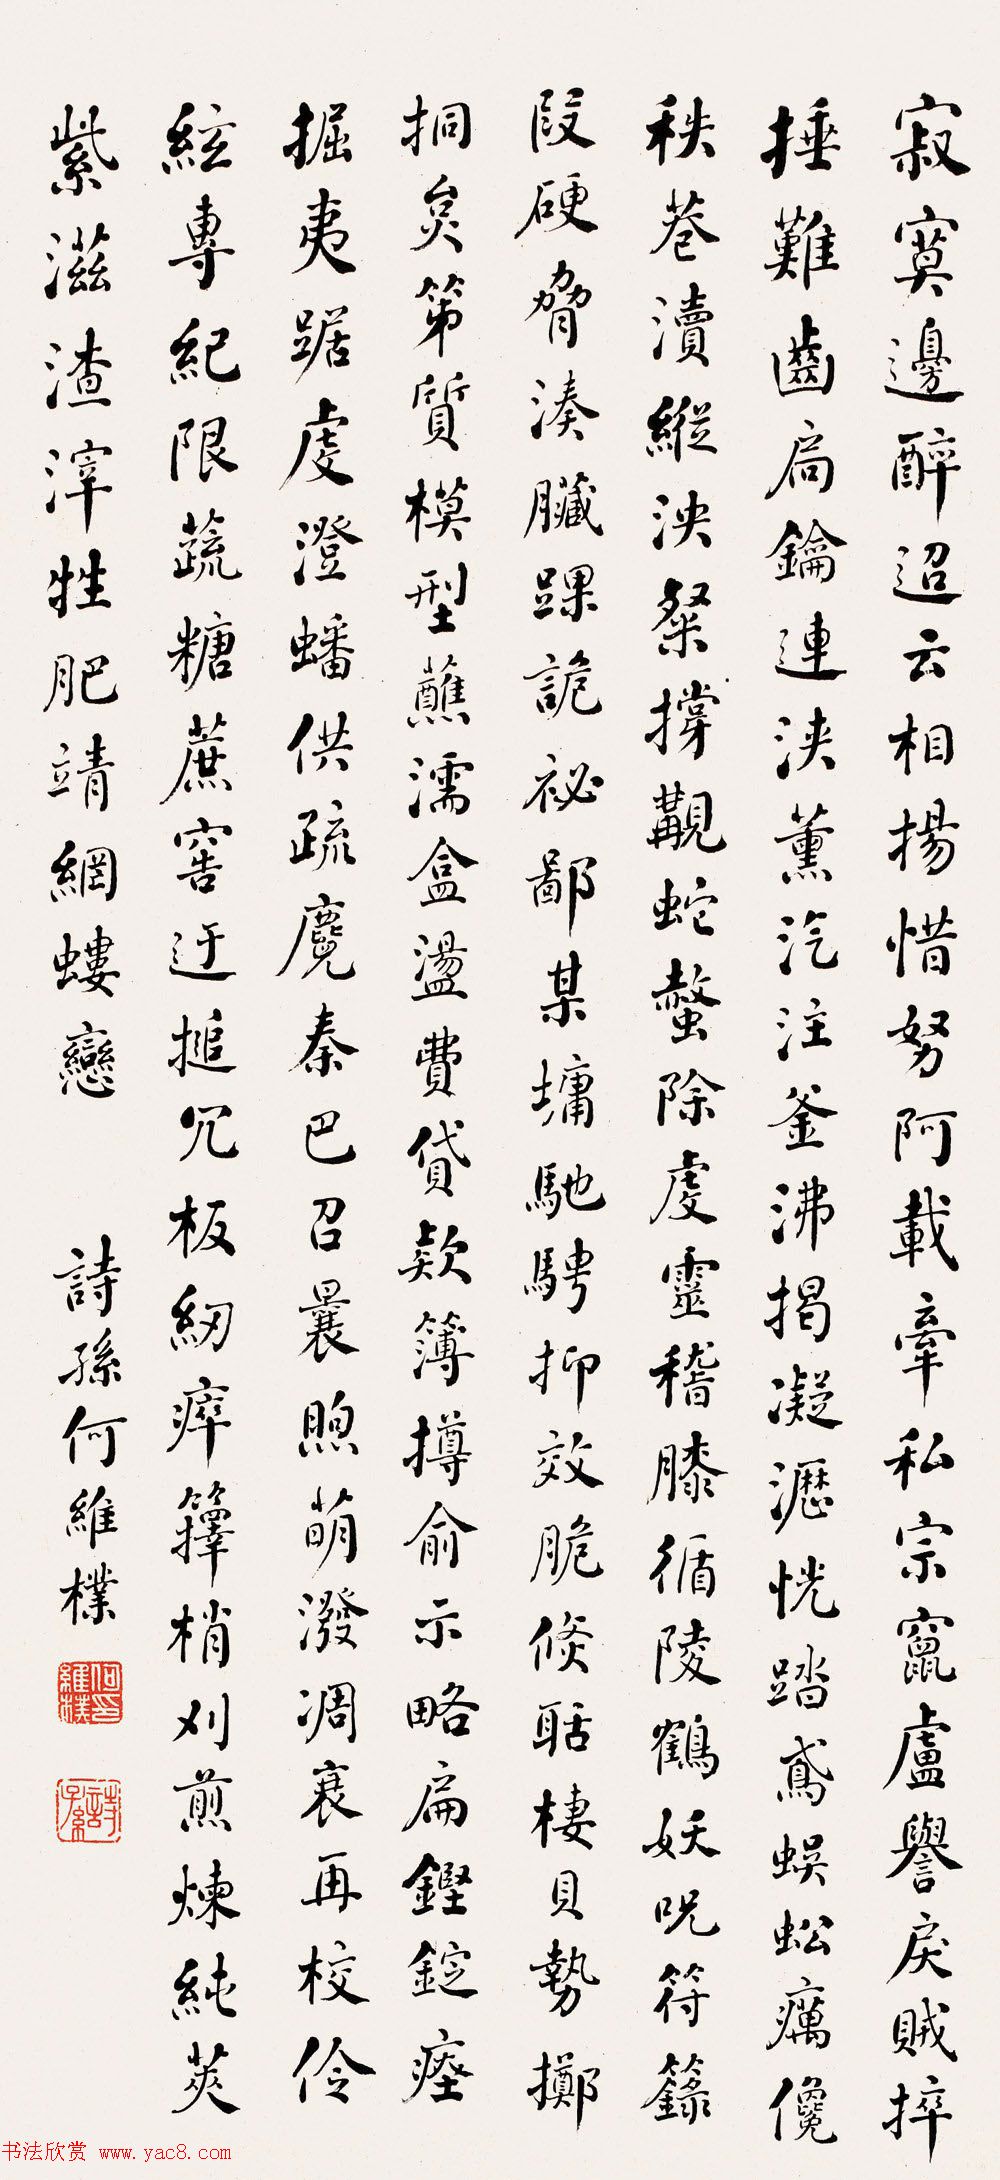 寂寞邊醉迢云相揚惜努阿載牽私宗竄盧譽戾賊捽
捶難齒扃鑰連浹薰汽注釜沸揭凝瀝恍踏鳶蜈蚣癘儳
秩巷瀆縱泱粲撐觀蛇螫除虔靈稽膝循陵鶴妖呪符籙
段硬脅湊臟踝詭祕鄙某墉馳騁抑效脆倏聒棲貝勢擲
挏炱第質模型蘸濡盒盪費貸款簿撙俞示略扁鏗錠瘞
掘夷踞虔澄蟠供疏麑秦巴召曩煦萌潑凋衰再校伶
絃專紀限蔬糖蔗窖迂搥冗板紉瘁籜梢刈煎煉純莢
紫滋渣滓牲肥靖網螻戀
詩孫何維樸
何維樸印
詩孫
书法欣赏 www.yac8.com